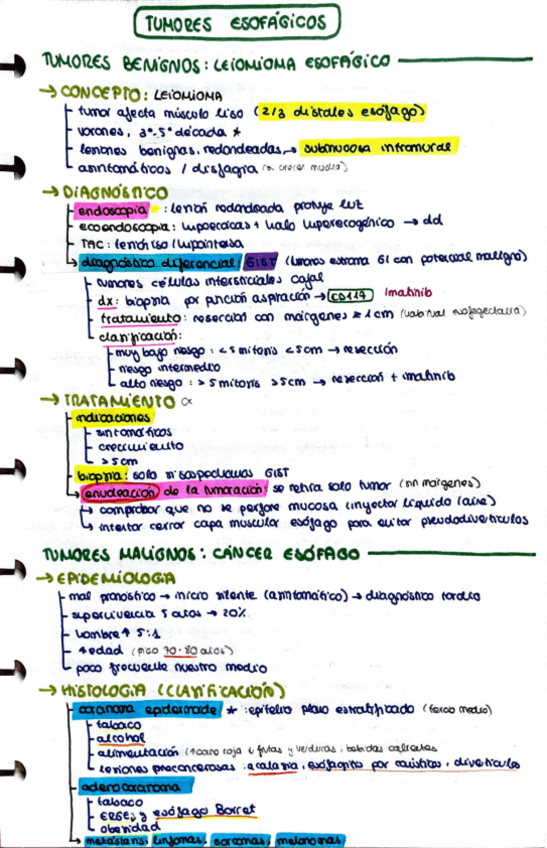 TUMORES ESOFÁGICOS
TUMORES BENIGNOS: LEIOMIOMA ESOFÁGICO
→ CONCEPTO: LEIOMIOMA
tumor afecta músculo liso (2/3 distales esófago)
varones, 3ª-5ª década *
lesiones benignas, redondeadas → submucosa intramural
asintomáticos / disfagia (si crecen mucho)
→ DIAGNÓSTICO
endoscopia * : lesión redondeada protuye luz
ecoendoscopia: hipoecoicas + halo hiperecogénico → dd
TAC: lesión iso/hipointensa
diagnóstico diferencial: GIST (tumores estroma GI con potencial maligno)
tumores células intersticiales Cajal
dx: biopsia por punción aspiración → CD117 imatinib
tratamiento: resección con márgenes ≥ 1cm
clasificación:
muy bajo riesgo: < 5 mitosis < 5cm → resección
riesgo intermedio
alto riesgo: > 5 mitosis > 5cm → resección + imatinib
→ TRATAMIENTO
indicaciones
sintomáticos
crecimiento
> 5cm
biopsia: solo si sospechamos GIST
enucleación de la tumoración: se retira solo tumor (sin márgenes)
↳ comprobar que no se perfore mucosa (inyectar líquido / aire)
↳ intentar cerrar capa muscular esófago para evitar pseudodivertículos
TUMORES MALIGNOS: CÁNCER ESÓFAGO
→ EPIDEMIOLOGIA
mal pronóstico → inicio silente (asintomático) → diagnóstico tardío
supervivencia 5 años → 20%
hombre ↑ 5:1
↑ edad (pico 70-80 años)
poco frecuente nuestro medio
→ HISTOLOGIA (CLASIFICACIÓN)
carcinoma epidermoide * : epitelio plano estratificado (tercio medio)
tabaco
alcohol
alimentación (↑ carne roja ↓ frutas y verduras, bebidas calientes
lesiones precancerosas: acalasia, esofagitis por caústicos, divertículos
adenocarcinoma
tabaco
ERGE y esófago Barret
obesidad
metástasis, linfomas, sarcomas, melanomas